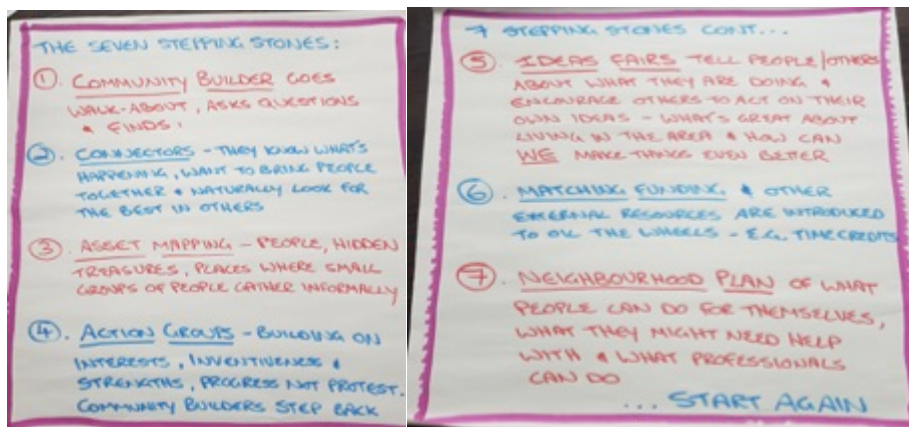 THE SEVEN STEPPING STONES:
1. COMMUNITY BUILDER GOES
WALK-ABOUT, ASKS QUESTIONS
& FINDS:
2. CONNECTORS - THEY KNOW WHAT'S
HAPPENING, WANT TO BRING PEOPLE
TOGETHER & NATURALLY LOOK FOR
THE BEST IN OTHERS
3. ASSET MAPPING - PEOPLE, HIDDEN
TREASURES, PLACES WHERE SMALL
GROUPS OF PEOPLE GATHER INFORMALLY
4. ACTION GROUPS - BUILDING ON
INTERESTS, INVENTIVENESS &
STRENGTHS, PROGRESS NOT PROTEST.
COMMUNITY BUILDERS STEP BACK
7 STEPPING STONES CONT...
5. IDEAS FAIRS TELL PEOPLE/OTHERS
ABOUT WHAT THEY ARE DOING &
ENCOURAGE OTHERS TO ACT ON THEIR
OWN IDEAS - WHAT'S GREAT ABOUT
LIVING IN THE AREA & HOW CAN
WE MAKE THINGS EVEN BETTER
6. MATCHING FUNDING & OTHER
EXTERNAL RESOURCES ARE INTRODUCED
TO OIL THE WHEELS - E.G. TIME CREDITS
7. NEIGHBOURHOOD PLAN OF WHAT
PEOPLE CAN DO FOR THEMSELVES,
WHAT THEY MIGHT NEED HELP
WITH & WHAT PROFESSIONALS
CAN DO
... START AGAIN